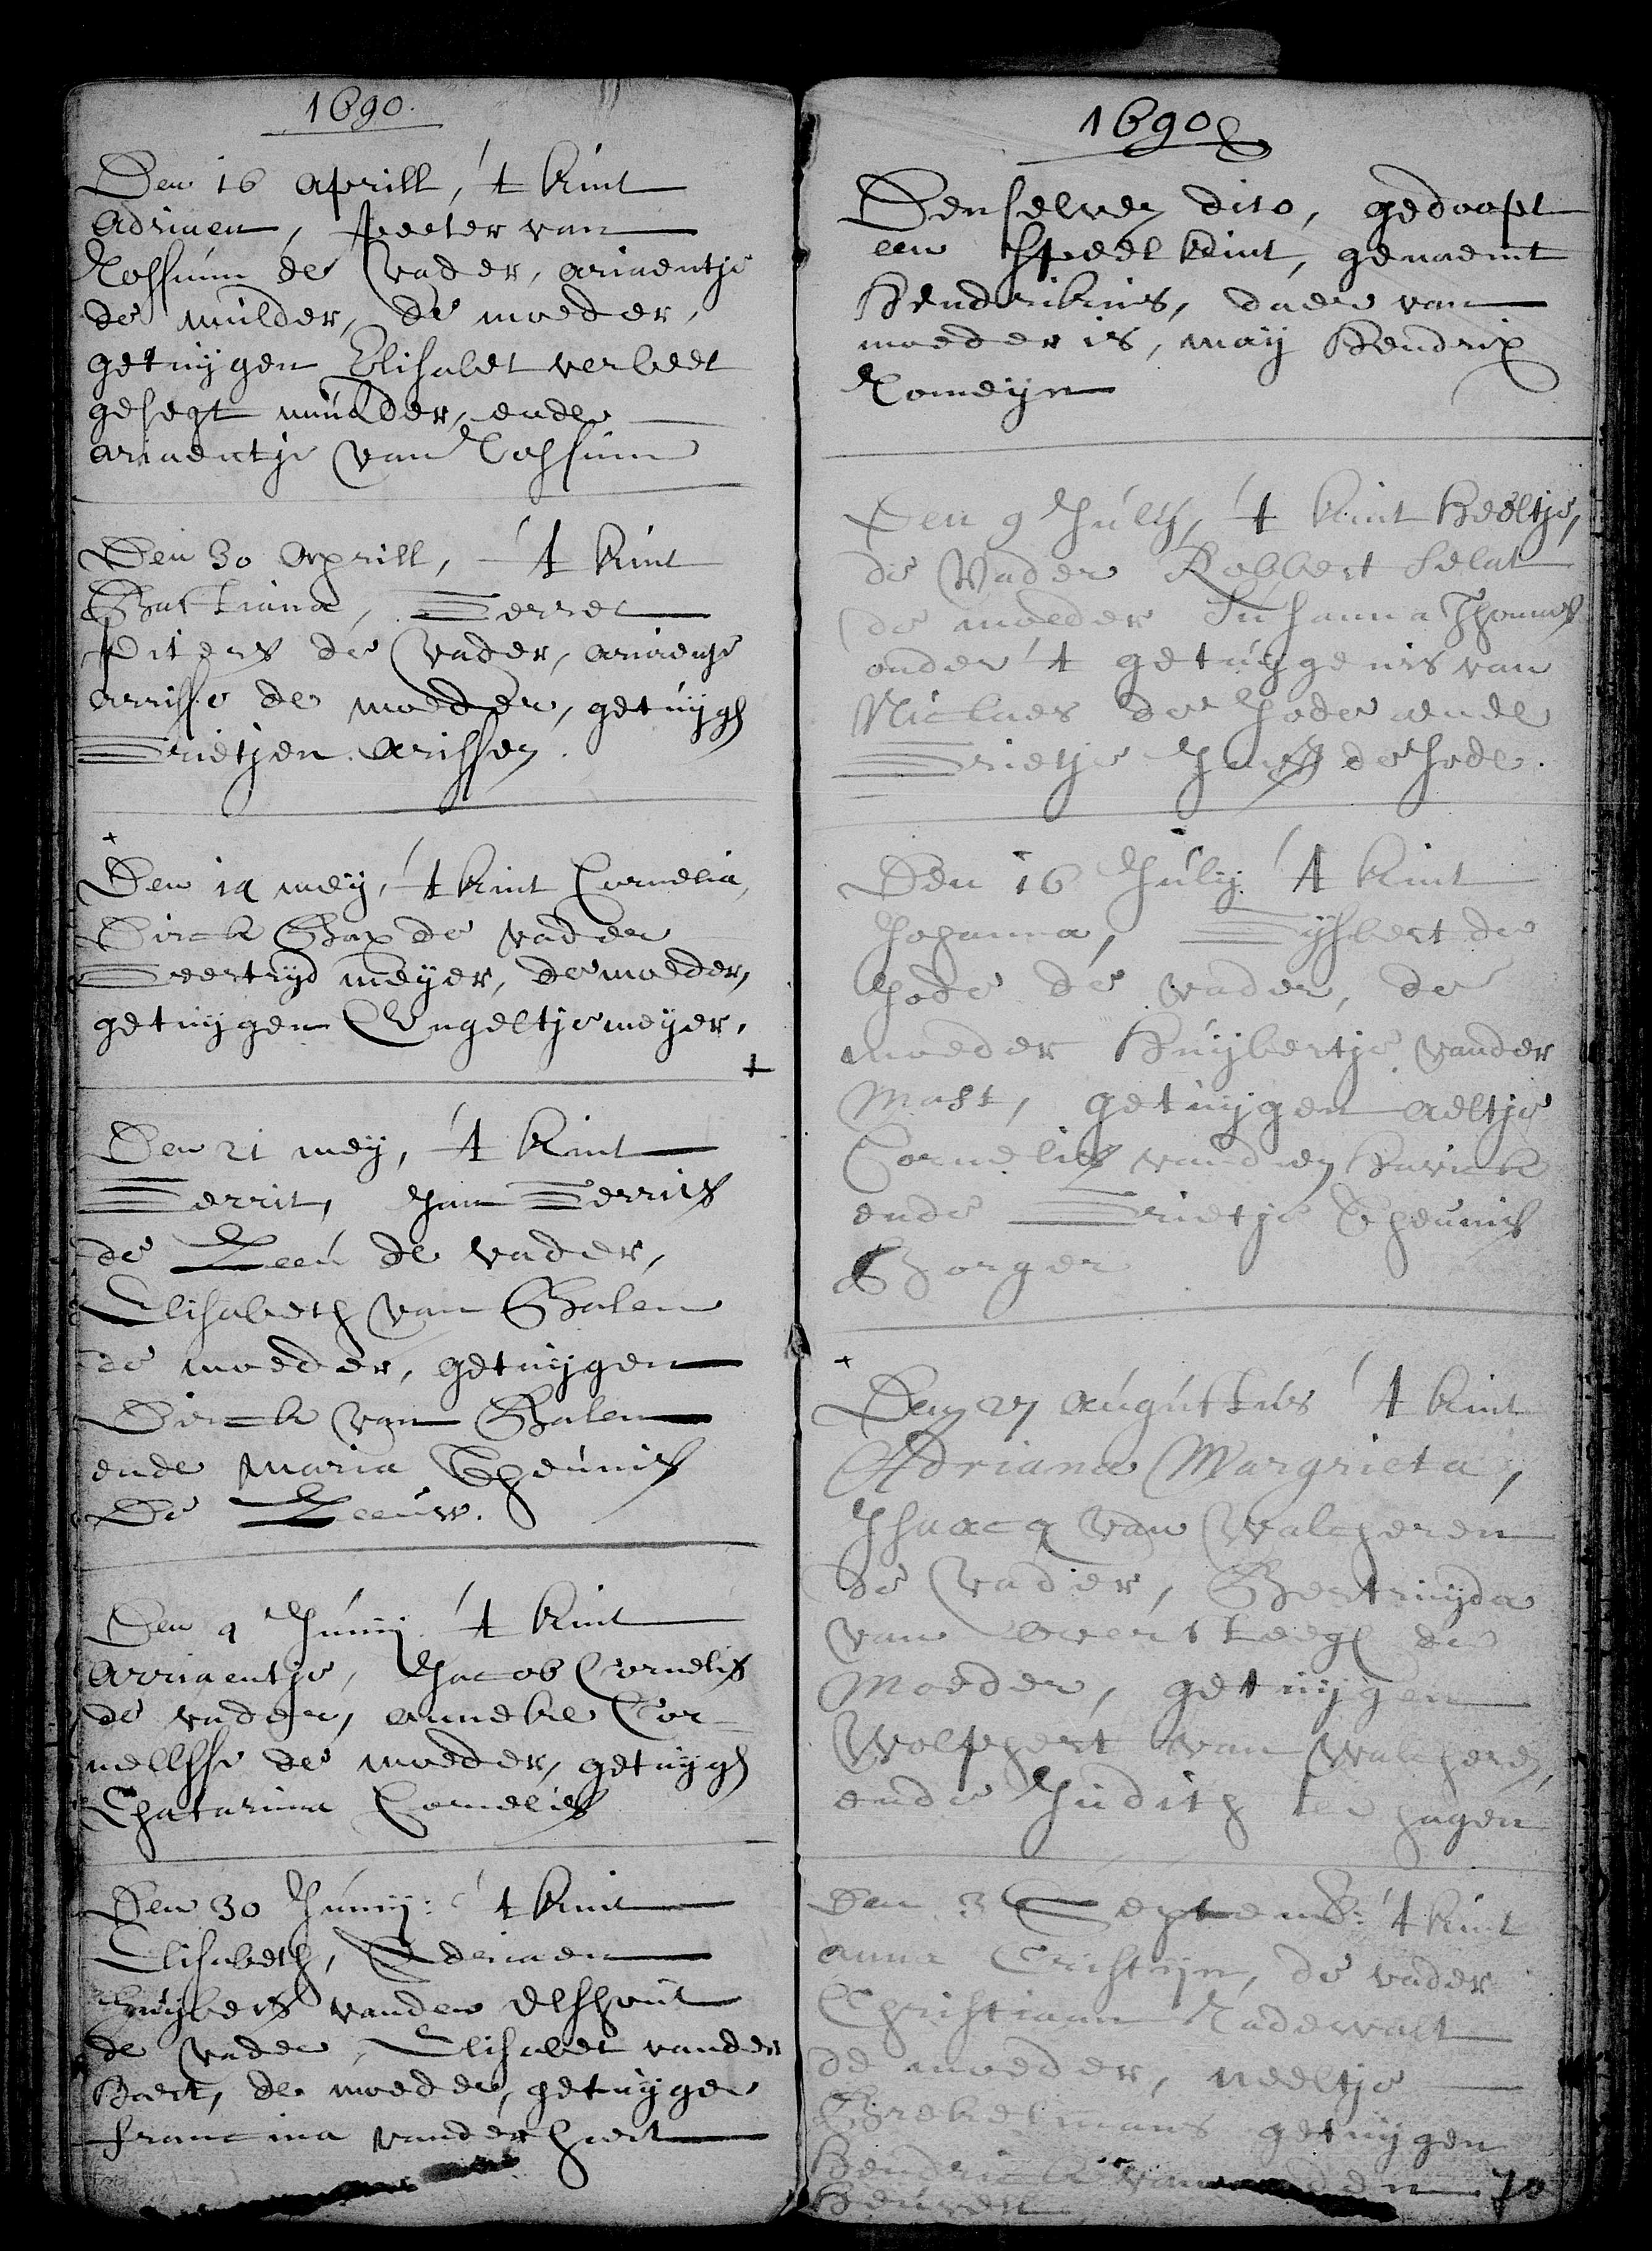 1690.
Den 16 aprill, 't kint
Adriaen, peeter van
Rossum de vader, ariaentje
de mulder, de moeder,
getuygen Elisabet verbeet
gesegt mulder, ende
ariaentje van Rossum
Den 30 Aprill, 't kint
Bastiana, Gerret
piters de vader, ariaentje
arrisse de moeder, getuygh
Grietjen arissen.
Den 14 mey, 't kint Cornelia,
Dirck Bax de vader
Geertryd meyer, de moeder,
getuygen Engeltje meyer.
Den 21 mey, 't kint
Gerrit, Jan Gerrits
de Leeu de vader,
Elisabeth van Balen
de moeder, getuygen
Dirck van Balen
ende Maria Theunis
De Leeuw.
Den 4 Junij 't kint
Arriaentje, Jacob Cornelis
de vader, anneke Cor-
nellsse de moeder, getuygh
Chatarina Cornelis
Den 30 Junij: 't kint
Elisabeth, Adriaen
huybers vanden Elshout
de vader, Elisabet vander
haert, de moeder, getuygen
francina vander haert
1690
Denselven dito, gedoopt
een speelkint, genaemt
Hendrikus, daer van
moeder is, may Hendrix
Romeyn
Den 9 July, 't kint Heeltje,
de Vader Robbert Selat
de moeder Susanna Thomas
onder 't getuygenis van
Niclaes de Jode ende
Grietje Jans de Jode.
Den 16 July 't kint
Johanna, Gysbert de
Jode de vader, de
moeder Huybertje vander
Mast, getuygen aeltje
Cornelis vanden Havick
ende Grietje Theunis
Borger
Den 27 augustus 't kint
Adriana Margrieta,
Isaacq van Walcheren
de vader, Geertruyda
van oversteegh de
Moeder, getuygen
Wolphert van Walcheren,
ende Judith ter hagen
Den 3 Septemb: 't kint
anna Cristyn, de vader
Christiaan Radewalt
de moeder, neeltje
Brekelmans getuygen
Hendrick van den
Heuvell
70